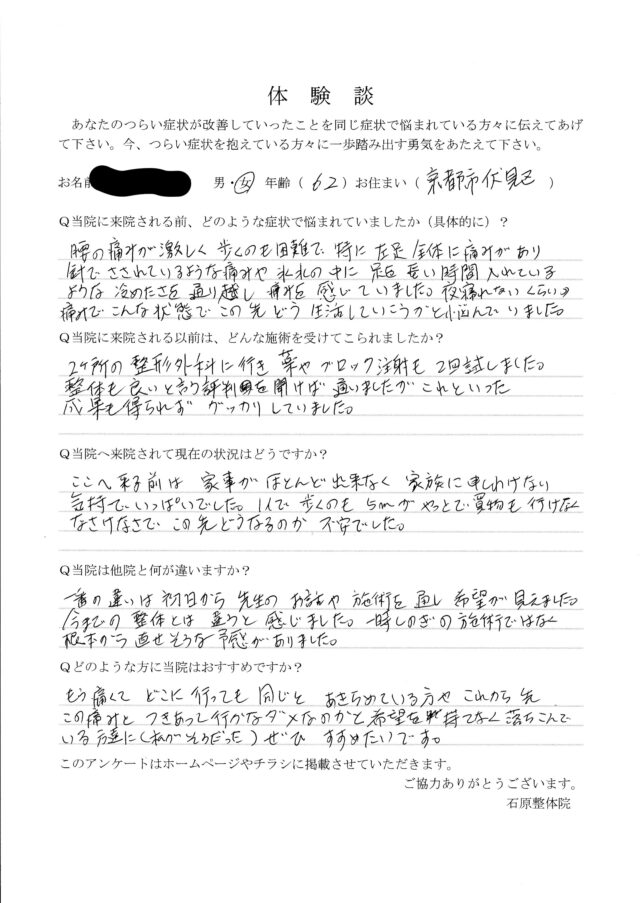 体験談
あなたのつらい症状が改善していったことを同じ症状で悩まれている方々に伝えてあげ
て下さい。今、つらい症状を抱えている方々に一歩踏み出す勇気をあたえて下さい。
お名前 男・女 年齢（62）お住まい（京都市伏見区）
Q当院に来院される前、どのような症状で悩まれていましたか（具体的に）？
腰の痛みが激しく歩くのも困難で特に左足全体に痛みがあり
針でさされているような痛みや氷水の中に足を長い時間入れている
ような冷めたさを通り越し痛みを感じていました。夜寝れないくらい
痛みでこんな状態でこの先どう生活していこうかと悩んでいました。
Q当院に来院される以前は、どんな施術を受けてこられましたか？
2ヶ所の整形外科に行き薬やブロック注射も2回試しました。
整体も良いと言う評判を聞けば通いましたがこれといった
成果も得られずガッカリしていました。
Q当院へ来院されて現在の状況はどうですか？
ここへ来る前は家事がほとんど出来なく家族に申しわけない
気持でいっぱいでした。1人で歩くのも5mがやっとで買物も行けなく
なさけなさでこの先どうなるのか不安でした。
Q当院は他院と何が違いますか？
一番の違いは初日から先生のお話や施術を通し希望が見えました。
今までの整体とは違うと感じました。一時しのぎの施術ではなく
根本から直せそうな予感がありました。
Qどのような方に当院はおすすめですか？
もう痛くてどこに行っても同じとあきらめている方やこれから先
この痛みとつきあって行かなダメなのかと希望を持てなく落ちこんで
いる方達に（私がそうだった）ぜひすすめたいです。
このアンケートはホームページやチラシに掲載させていただきます。
ご協力ありがとうございます。
石原整体院